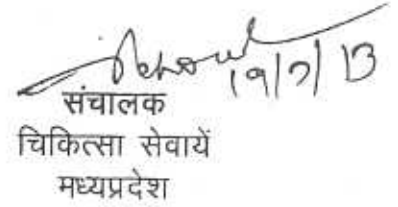 19/7/13
संचालक
चिकित्सा सेवायें
मध्यप्रदेश